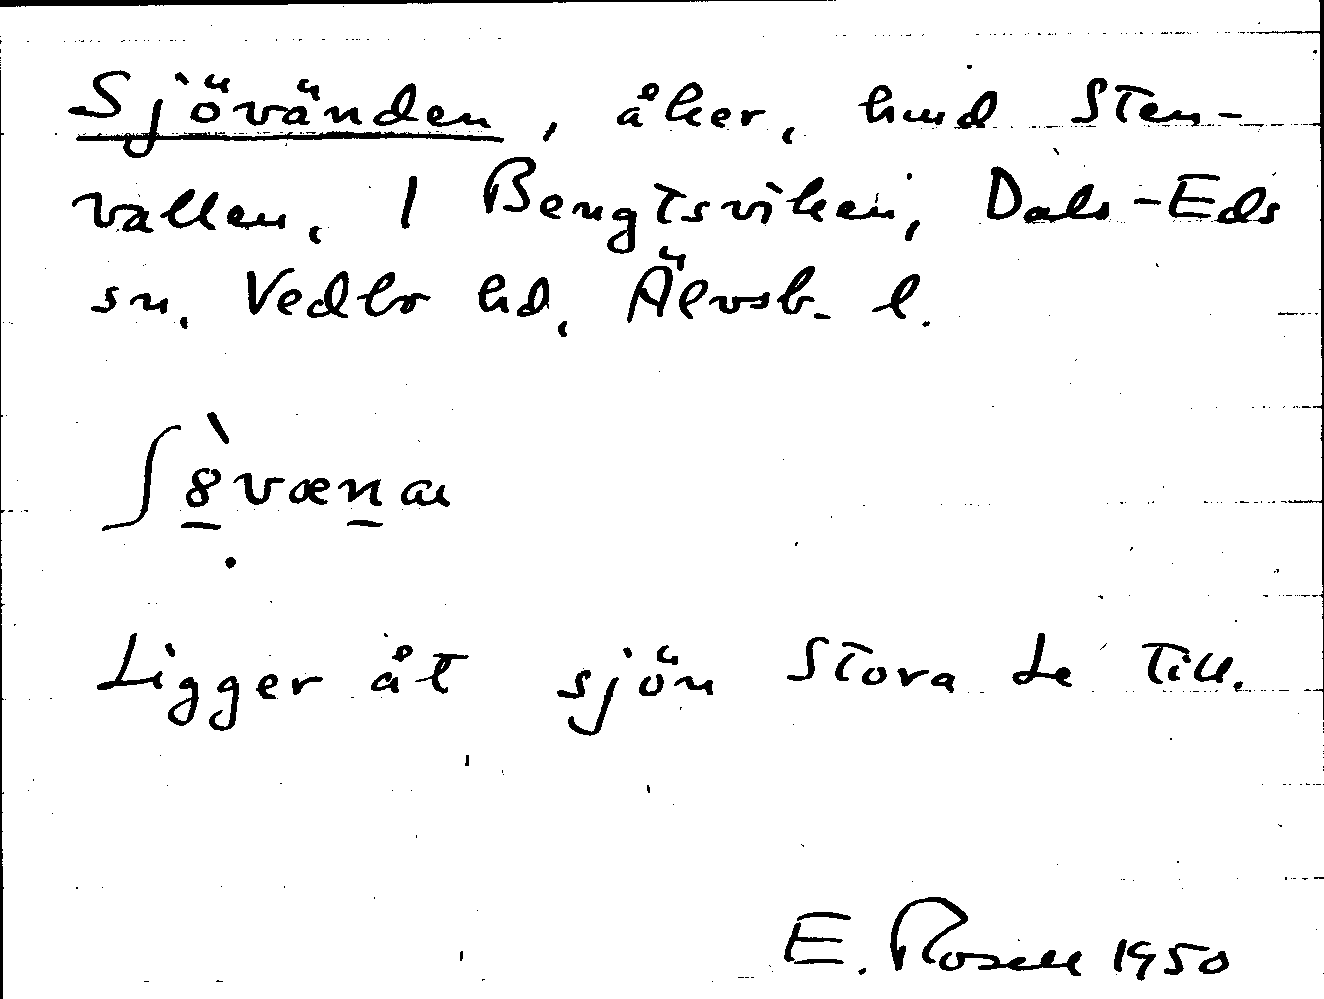 Sjövänden, åker, hmd Sten-
vallen, 1 Bengtsviken, Dals-Eds
sn, Vedbo hd, Älvsb. l.
Ligger åt sjön Stora Le till.
E. Rosell 1950